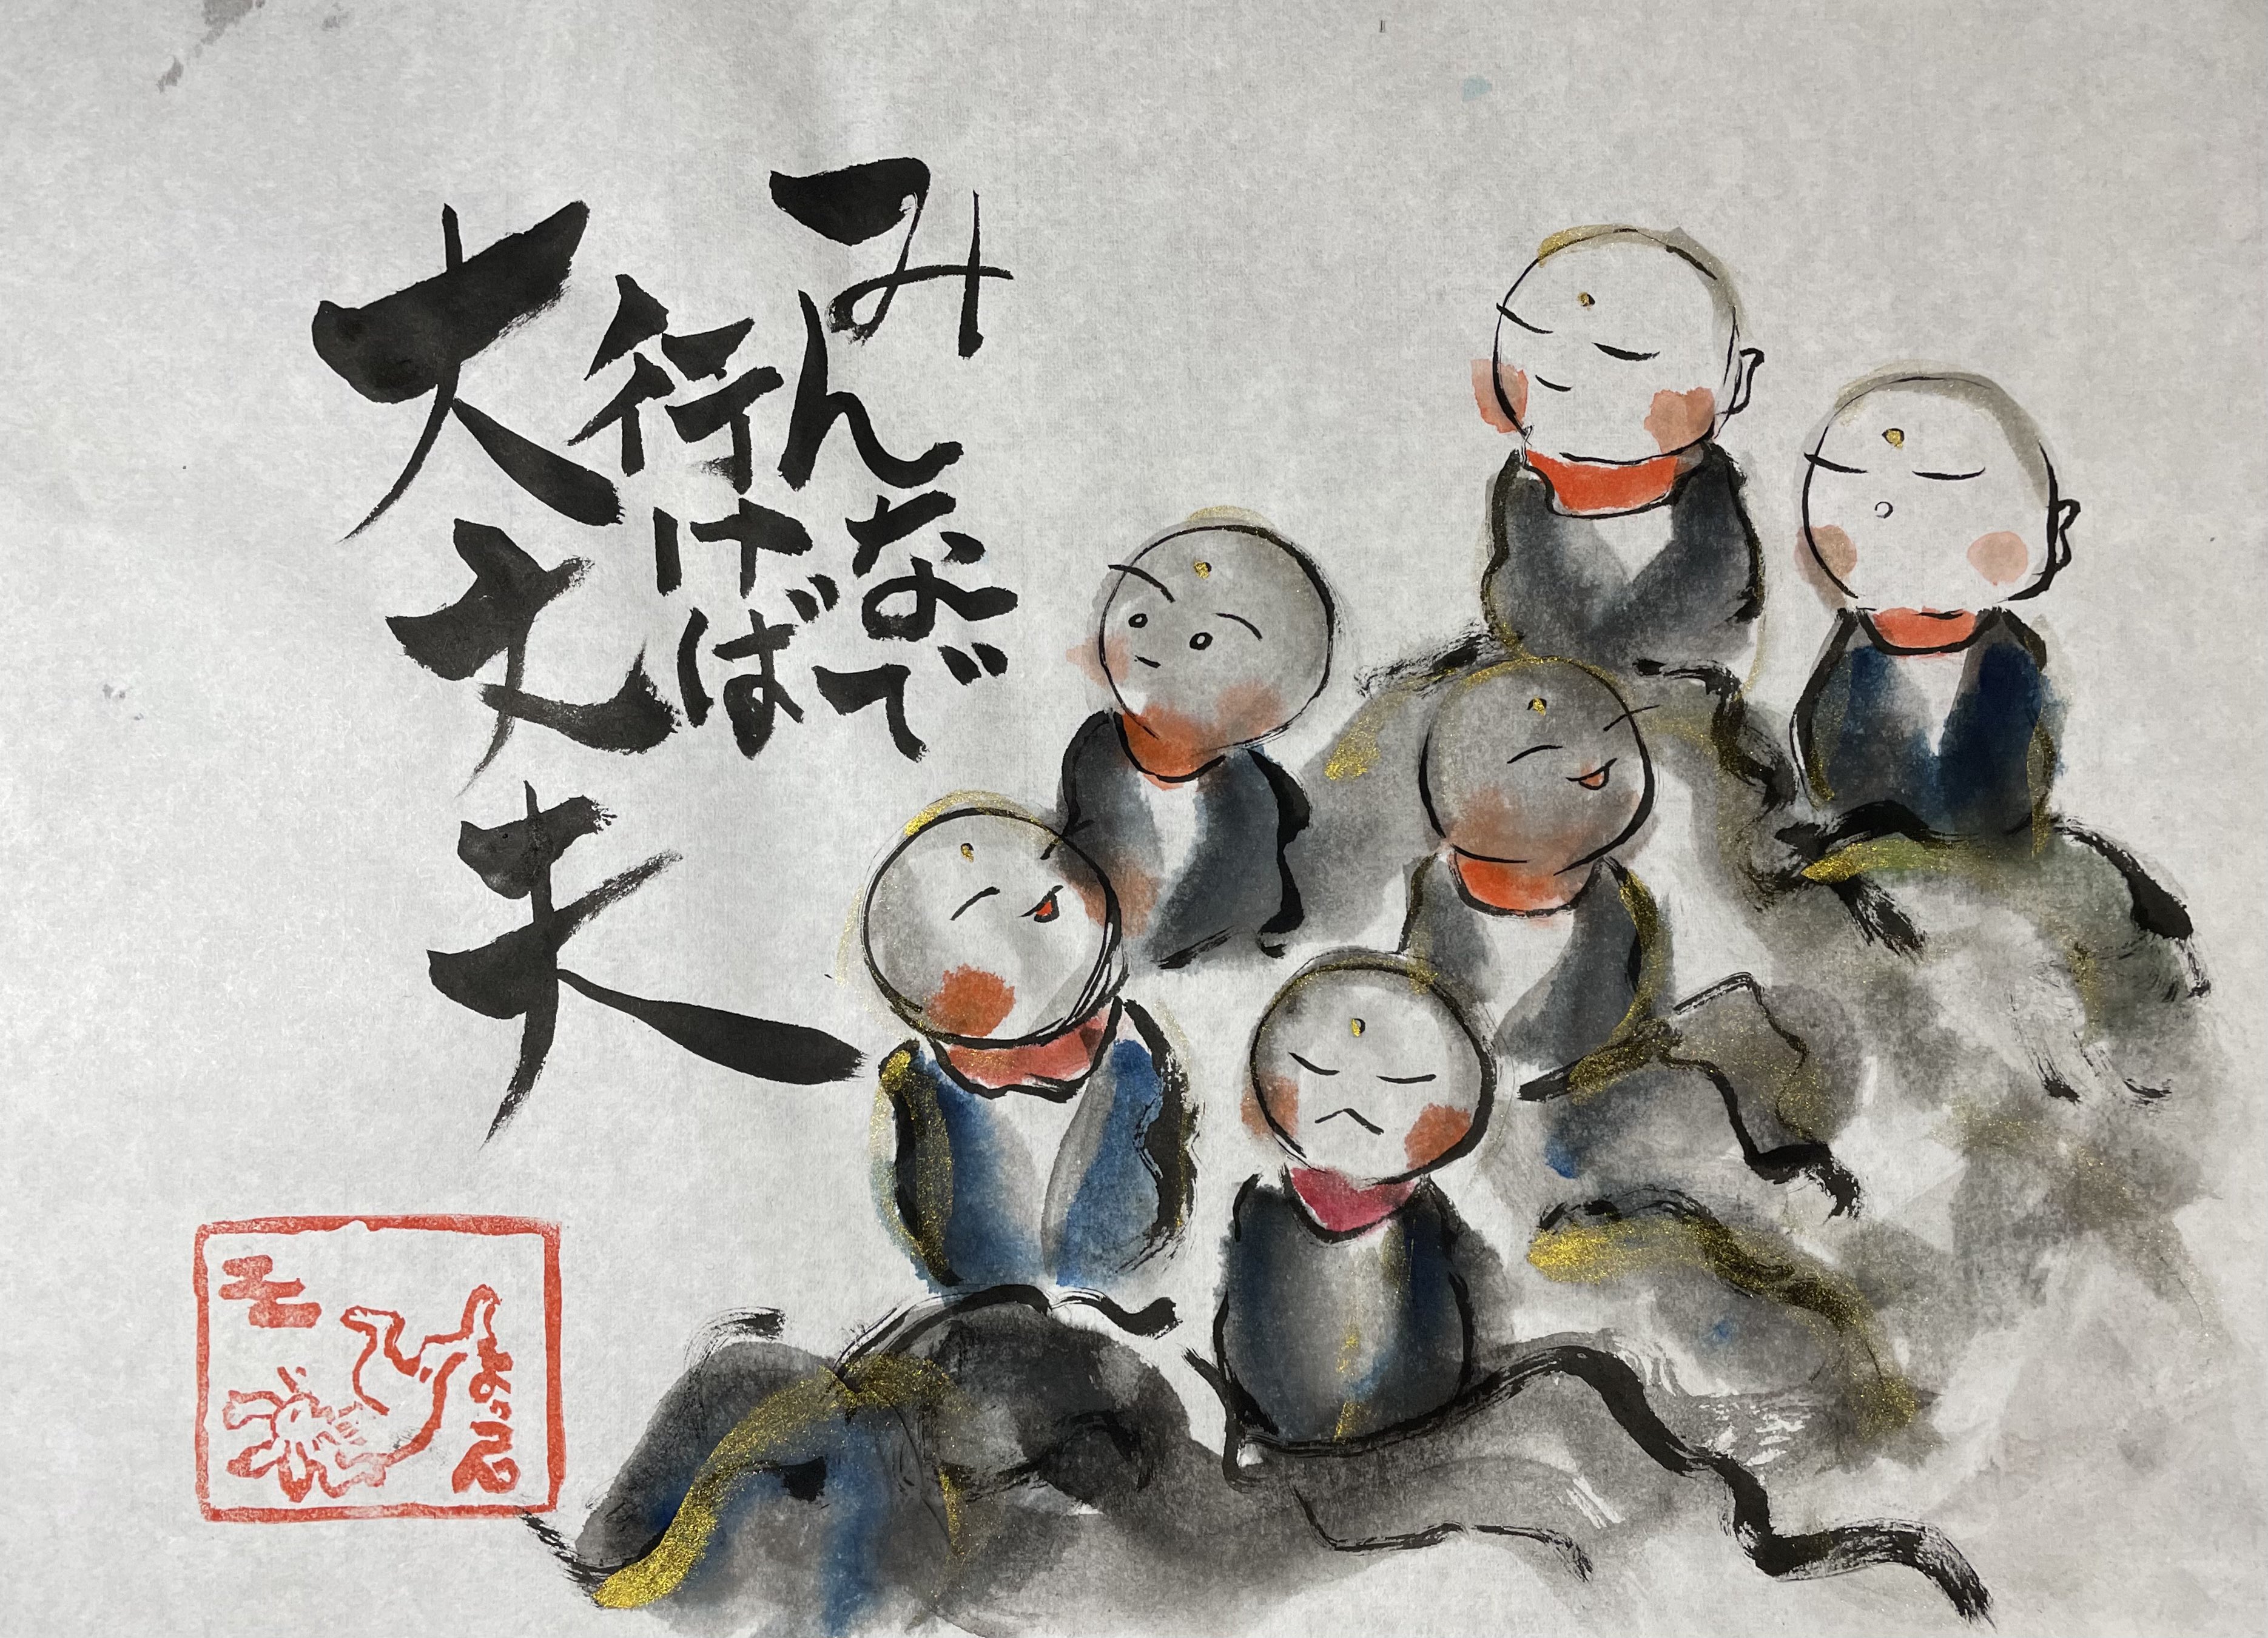 みんなで
行けば
大丈夫